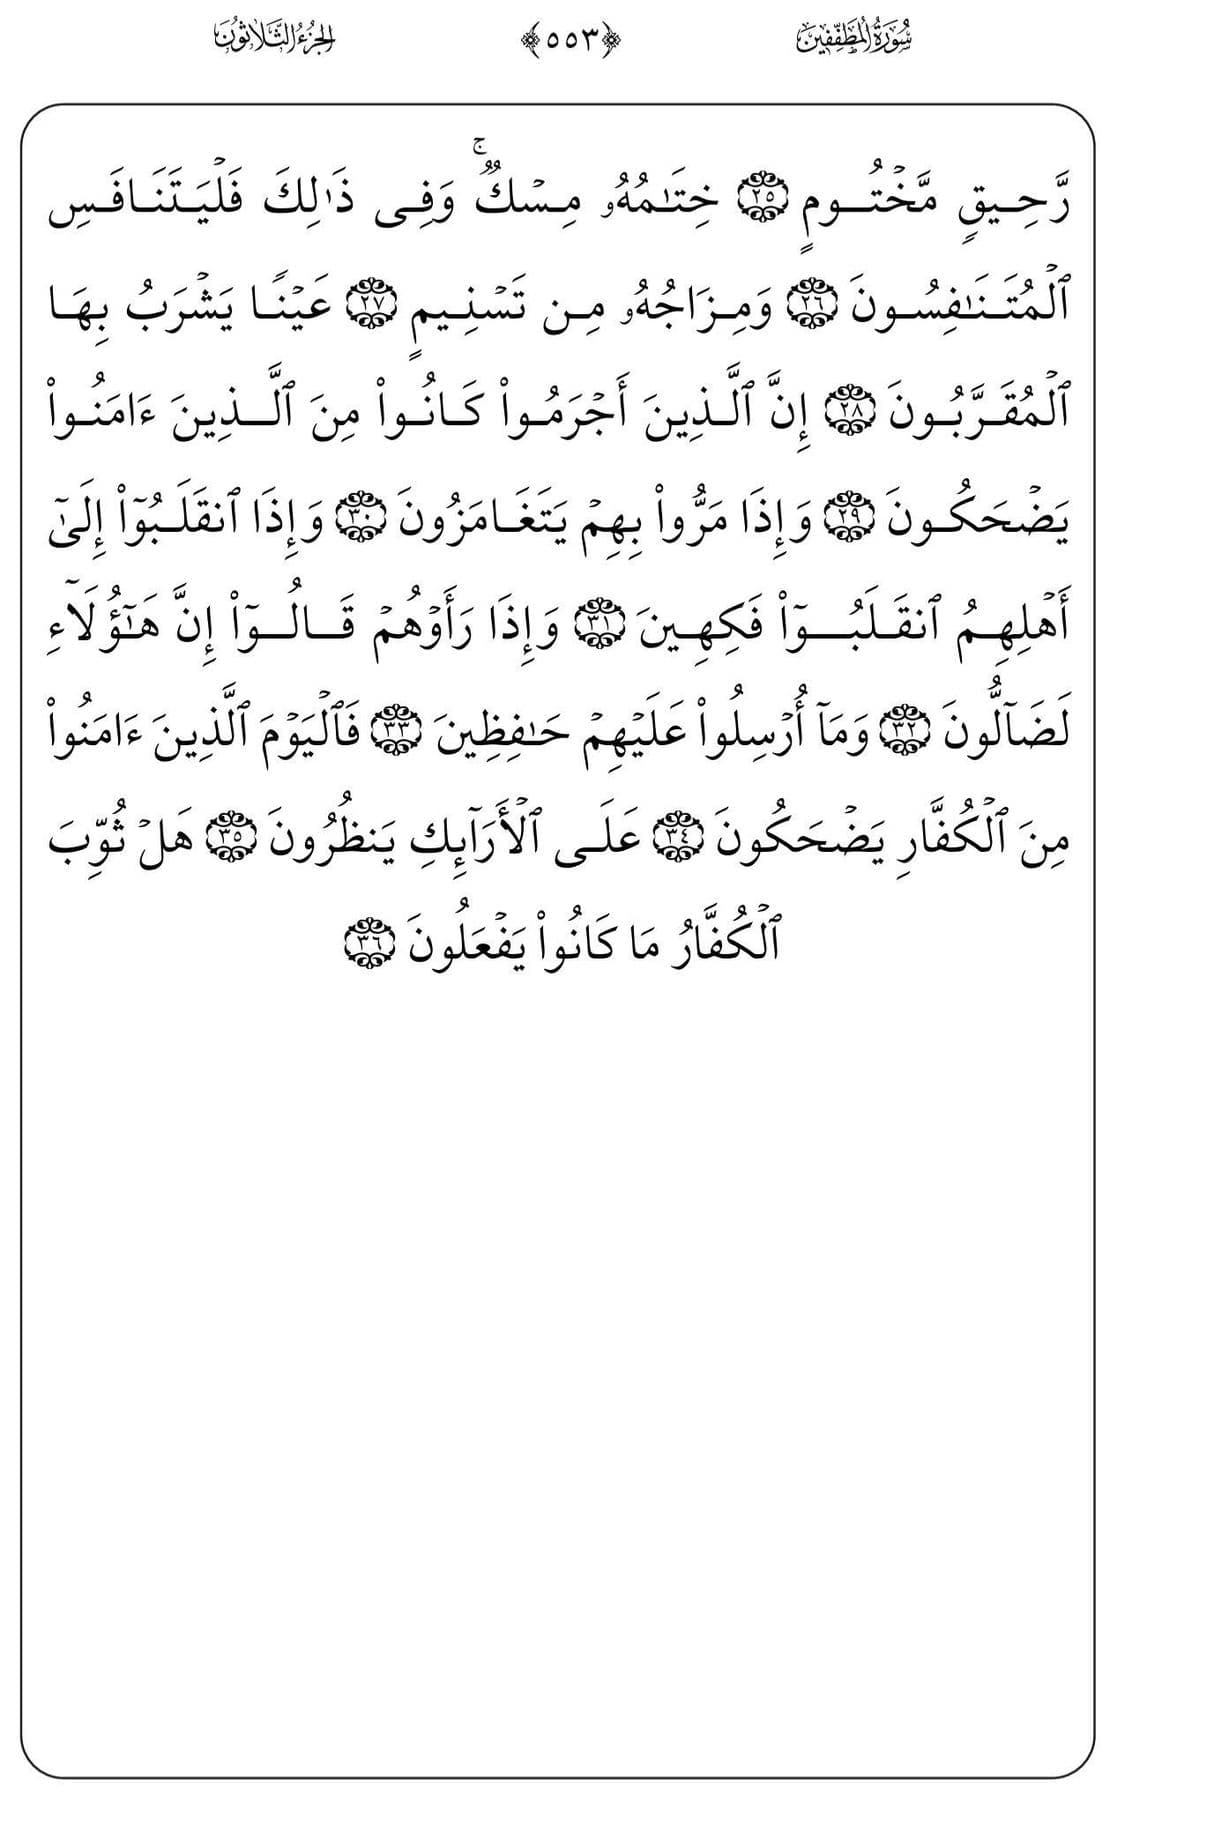 سُورَةُ المُطَفِّفِينَ ﴿٥٥٣﴾ الجُزْءُ الثَّلَاثُونَ
رَّحِيقٖ مَّخۡتُومٍ ٢٥ خِتَٰمُهُۥ مِسۡكٞۚ وَفِي ذَٰلِكَ فَلۡيَتَنَافَسِ
ٱلۡمُتَنَٰفِسُونَ ٢٦ وَمِزَاجُهُۥ مِن تَسۡنِيمٍ ٢٧ عَيۡنٗا يَشۡرَبُ بِهَا
ٱلۡمُقَرَّبُونَ ٢٨ إِنَّ ٱلَّذِينَ أَجۡرَمُواْ كَانُواْ مِنَ ٱلَّذِينَ ءَامَنُواْ
يَضۡحَكُونَ ٢٩ وَإِذَا مَرُّواْ بِهِمۡ يَتَغَامَزُونَ ٣٠ وَإِذَا ٱنقَلَبُوٓاْ إِلَىٰٓ
أَهۡلِهِمُ ٱنقَلَبُوٓاْ فَكِهِينَ ٣١ وَإِذَا رَأَوۡهُمۡ قَالُوٓاْ إِنَّ هَٰٓؤُلَآءِ
لَضَآلُّونَ ٣٢ وَمَآ أُرۡسِلُواْ عَلَيۡهِمۡ حَٰفِظِينَ ٣٣ فَٱلۡيَوۡمَ ٱلَّذِينَ ءَامَنُواْ
مِنَ ٱلۡكُفَّارِ يَضۡحَكُونَ ٣٤ عَلَى ٱلۡأَرَآئِكِ يَنظُرُونَ ٣٥ هَلۡ ثُوِّبَ
ٱلۡكُفَّارُ مَا كَانُواْ يَفۡعَلُونَ ٣٦